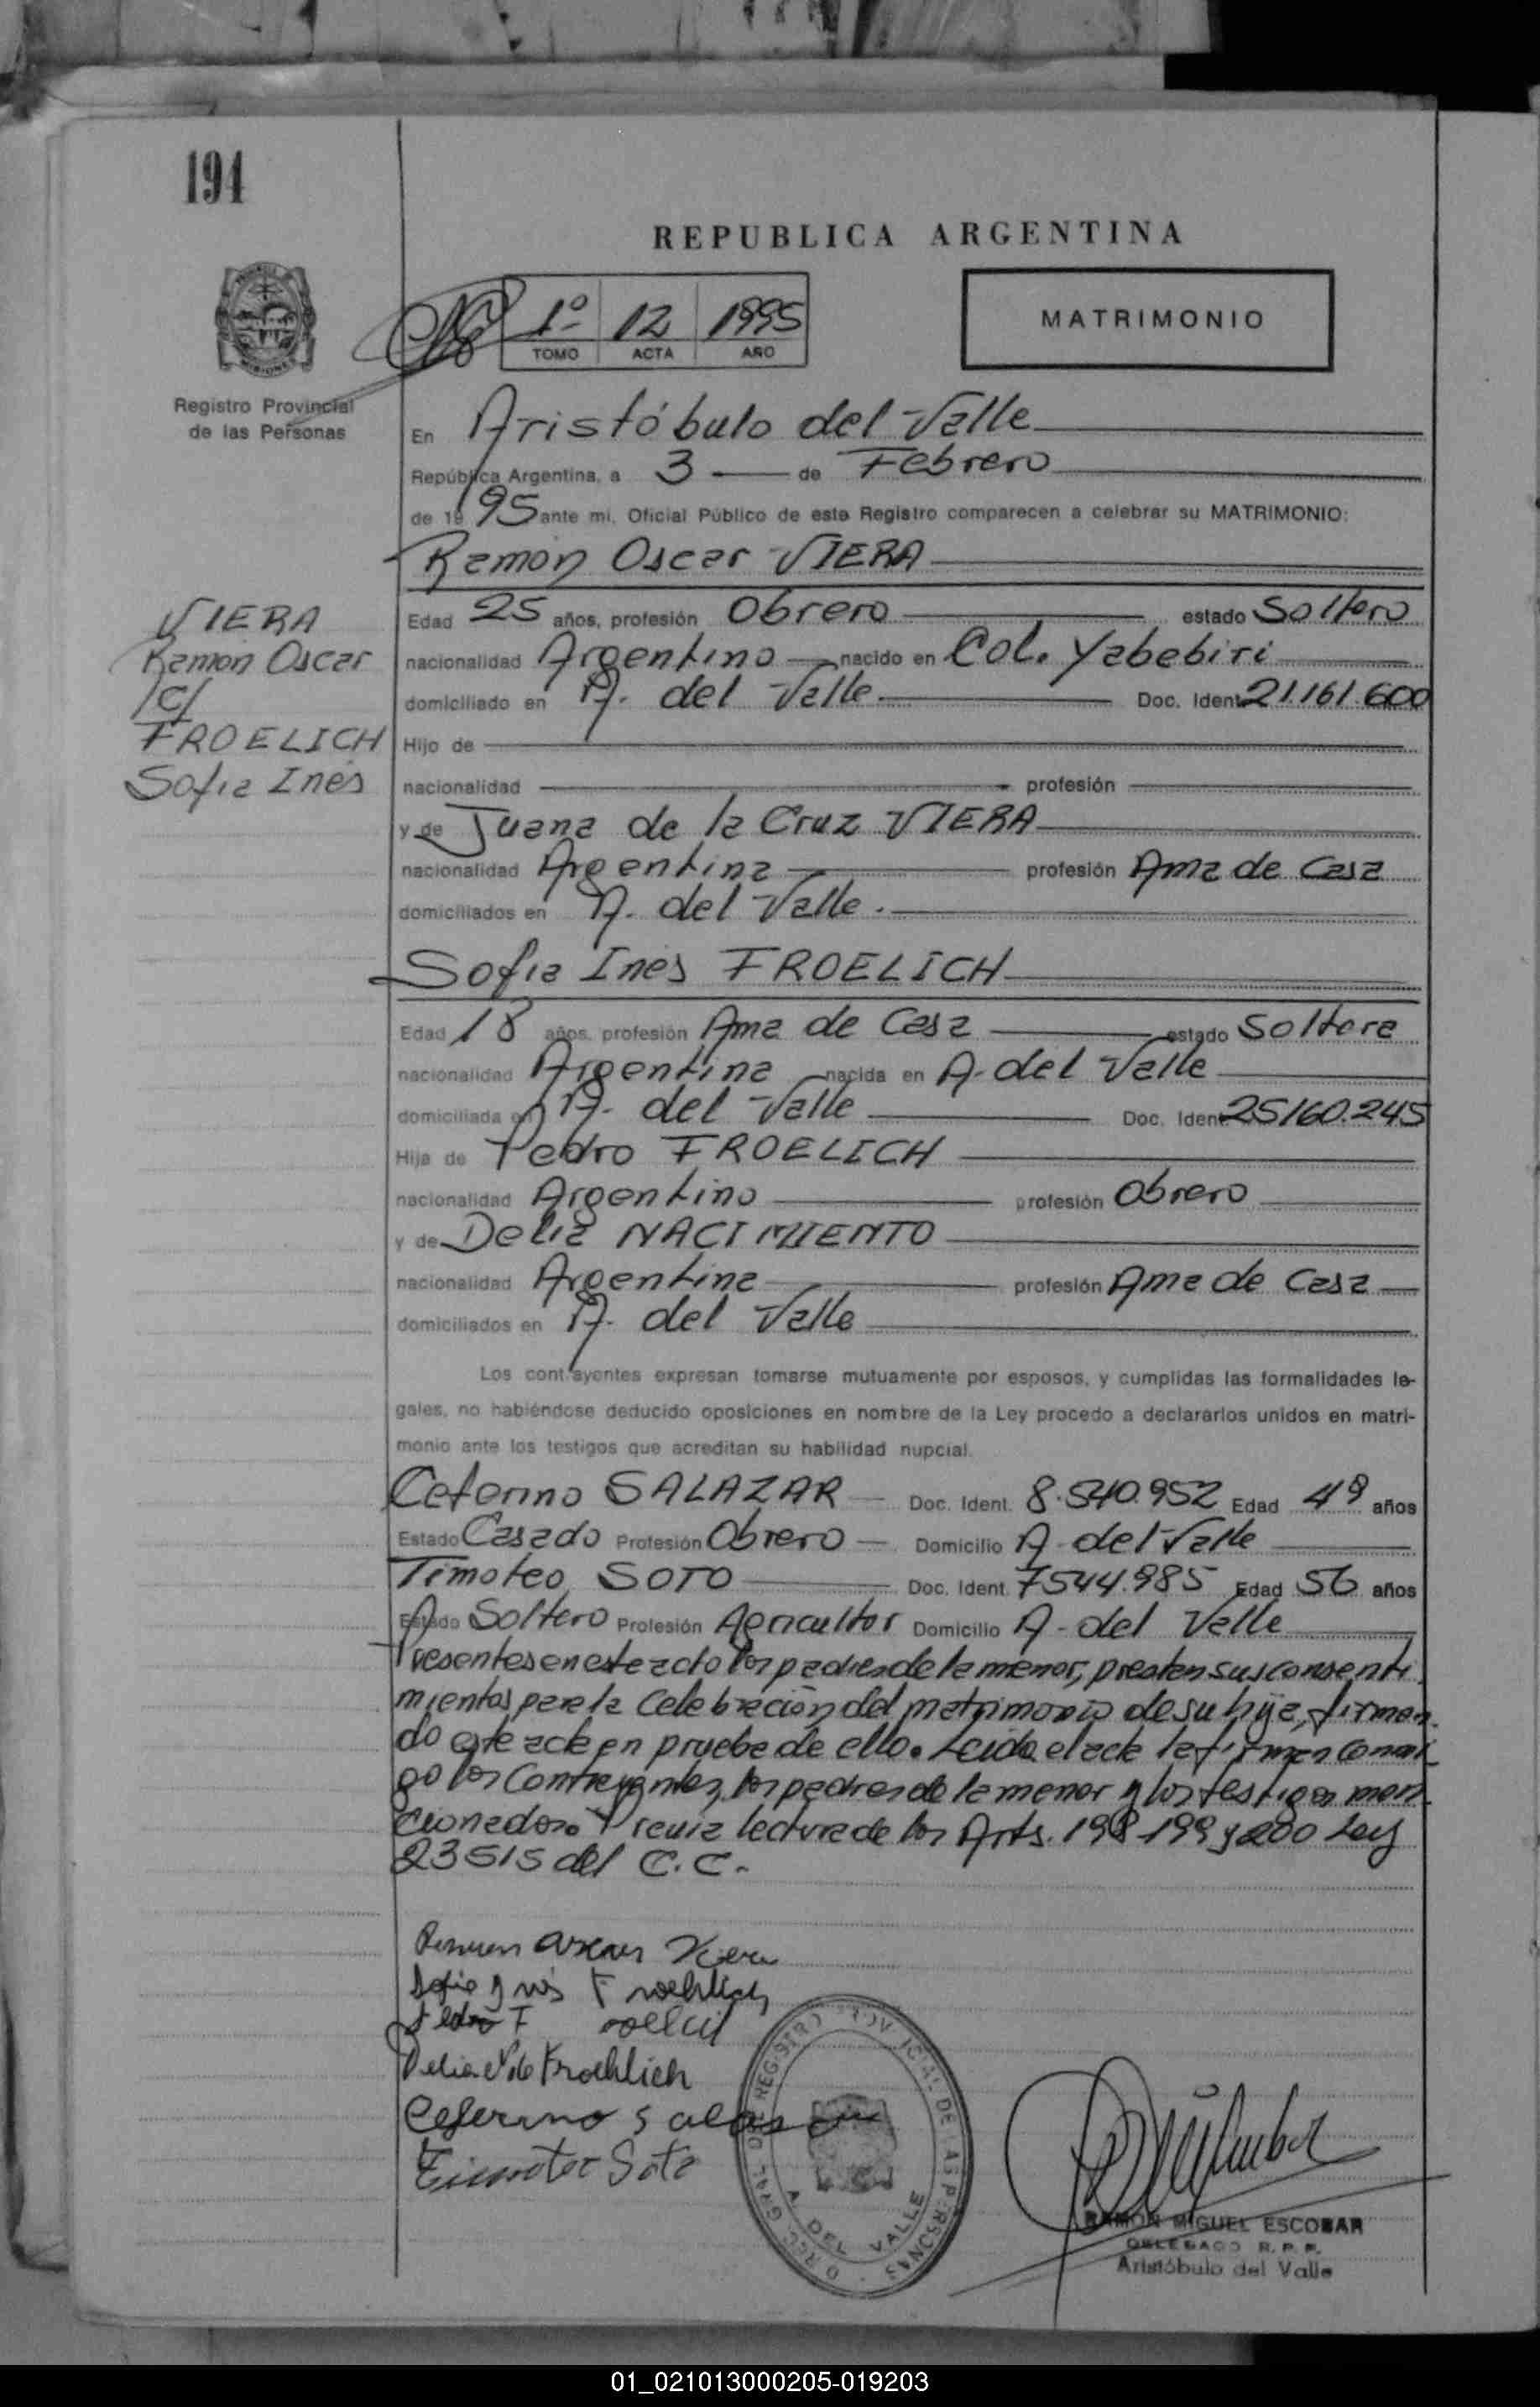 194
REPUBLICA ARGENTINA
1º 12 1995
TOMO ACTA AÑO
MATRIMONIO
Registro Provincial
de las Personas
En Aristóbulo del Valle
República Argentina, a 3 de Febrero
de 1995 ante mi, Oficial Público de este Registro comparecen a celebrar su MATRIMONIO:
Ramón Oscar VIERA
VIERA
Ramon Oscar
c/
FROELICH
Sofia Inés
Edad 25 años, profesión Obrero estado Soltero
nacionalidad Argentino nacido en Col. Yabebiri
domiciliado en A. del Valle Doc. Ident 21.161.600
Hijo de
nacionalidad profesión
y de Juana de la Cruz VIERA
nacionalidad Argentina profesión Ama de Casa
domiciliados en A. del Valle.
Sofia Inés FROELICH
Edad 18 años, profesión Ama de Casa estado Soltera
nacionalidad Argentina nacida en A. del Valle
domiciliada en A. del Valle Doc. Ident 25160.245
Hija de Pedro FROELICH
nacionalidad Argentino profesión Obrero
y de Delia NACIMIENTO
nacionalidad Argentina profesión Ama de Casa
domiciliados en A. del Valle
Los contrayentes expresan tomarse mutuamente por esposos, y cumplidas las formalidades le-
gales, no habiéndose deducido oposiciones en nombre de la Ley procedo a declararlos unidos en matri-
monio ante los testigos que acreditan su habilidad nupcial.
Ceferino SALAZAR Doc. Ident. 8.540.952 Edad 49 años
Estado Casado Profesión Obrero Domicilio A. del Valle
Timoteo SOTO Doc. Ident 7544.985 Edad 56 años
Estado Soltero Profesión Agricultor Domicilio A. del Valle
Presentes en este acto los padres de la menor, prestan sus consenti
mientos para la Celebración del matrimonio de su hija, firman-
do este acta en prueba de ello. Leida el acta la firman Conmi
go los Contrayentes, los padres de la menor y los testigos men
cionados. Previa lectura de los Arts. 198-199 y 200 Ley
23515 del C.C.-
Ramon oscar Viera
Sofia Ines Froehlich
Pedro F
Delia N de Froehlich
Ceferino Salazar
Timoteo Soto
DIREC. GRAL. DEL REGISTRO PROVINCIAL DE LAS PERSONAS
A. DEL VALLE
RAMON MIGUEL ESCOBAR
DELEGADO R. P. P.
Aristóbulo del Valle
01_021013000205-019203